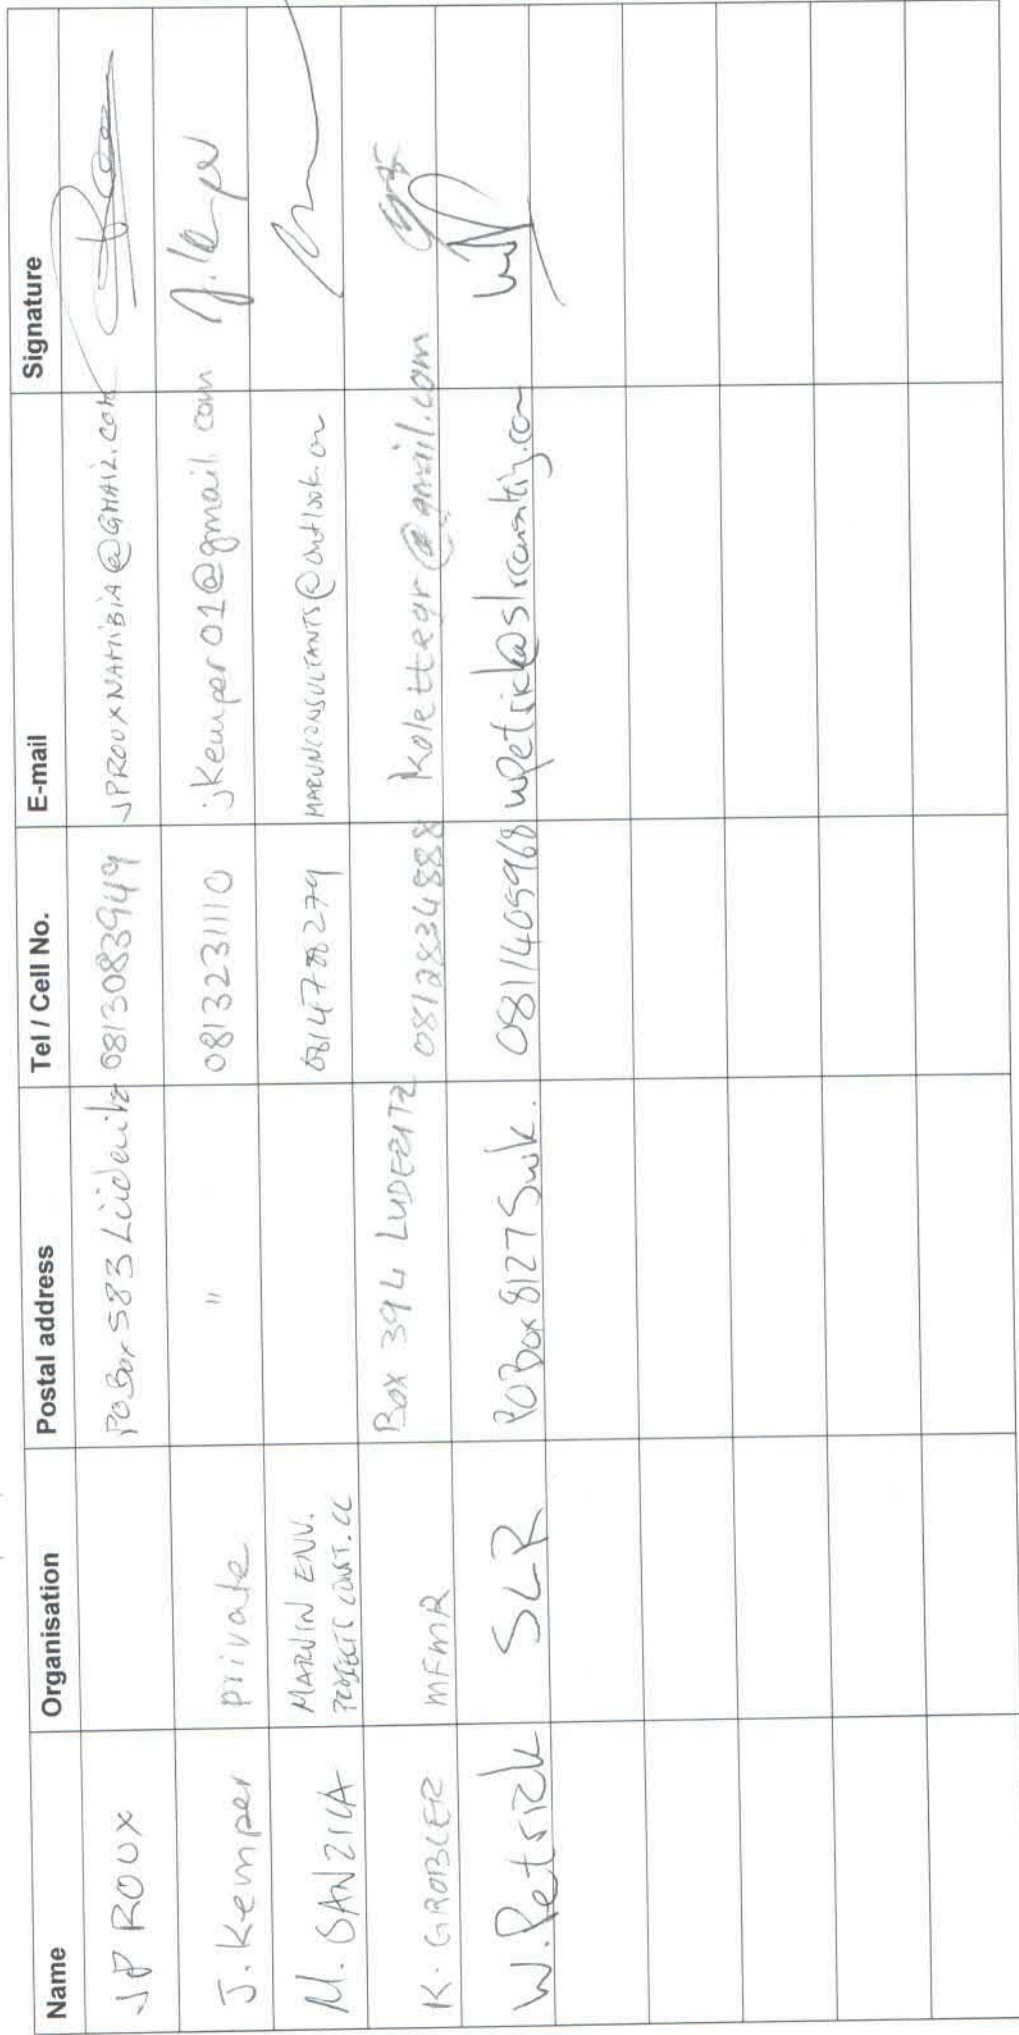 Name Organisation Postal address Tel / Cell No. E-mail Signature
JP ROUX PO Box 583 Lüderitz 0813083949 JPROUXNAMIBIA@GMAIL.COM
J. Kemper private " 0813231110 jkemper01@gmail.com J. Kemper
M. MARVIN ENV. 0814788279
CONST. CC
K. GROBLER MFMR Box 394 LUDERITZ 0812834888 kolettegr@gmail.com
W. Petrick SLR PO Box 8127 Swk. 0811405968 wpetrick@slrconsulting.com